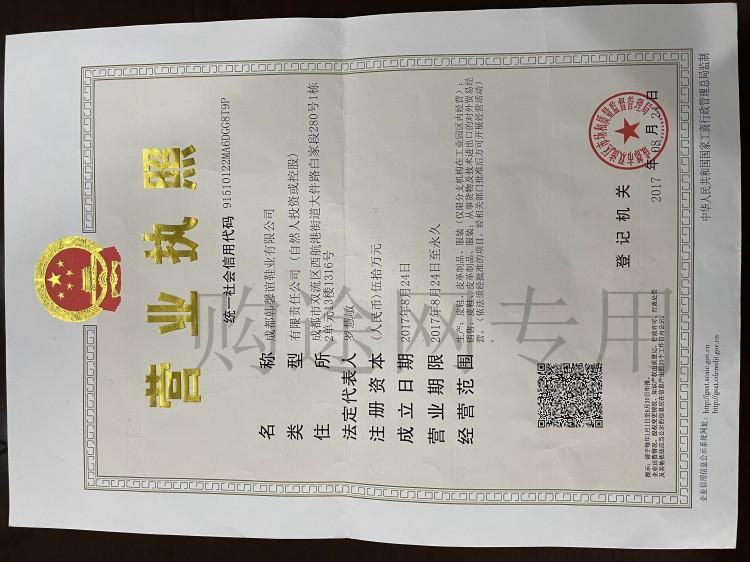 营业执照
统一社会信用代码 91510122MA6DGG8T9P
名称 成都韩馨谊鞋业有限公司
类型 有限责任公司（自然人投资或控股）
住所 成都市双流区西航港街道大件路白家段280号1栋
2单元13楼1316号
法定代表人 罗慧敏
注册资本 （人民币）伍拾万元
成立日期 2017年8月24日
营业期限 2017年8月24日至永久
经营范围 生产：皮鞋、皮革制品、服装（仅限分支机构在工业园区内经营）；
销售：皮鞋、皮革制品、服装；从事货物及技术进出口的对外贸易经
营。（依法须经批准的项目，经相关部门批准后方可开展经营活动）
登记机关
2017 年 08 月 24 日
提示：请于每年1月1日至6月30日年报。
企业信用信息公示系统网址：
http://gsxt.scaic.gov.cn
http://gsxt.cdcredit.gov.cn
中华人民共和国国家工商行政管理总局监制
购途网专用